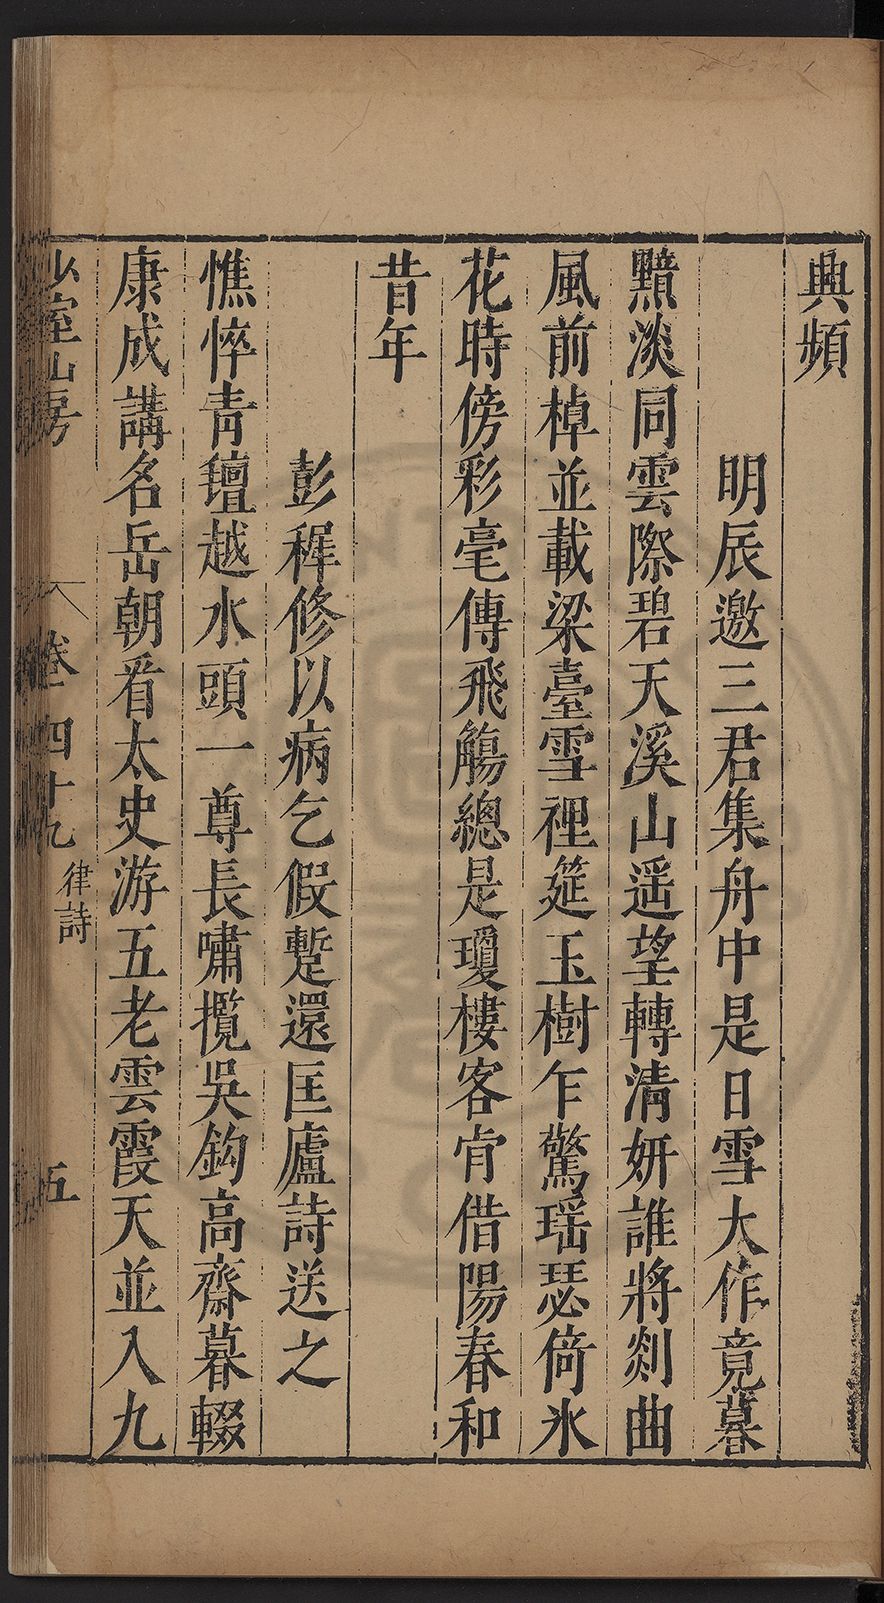 興頻
明辰邀三君集舟中是日雪大作竟暮
黯淡同雲際碧天溪山遥望轉清妍誰將剡曲
風前棹並載梁臺雪裡筵玉樹乍驚瑶瑟倚氷
花時傍彩毫傳飛觴總是瓊樓客肯借陽春和
昔年
彭稚修以病乞假蹔還匡廬詩送之
憔悴青氊越水頭一尊長嘯攬吳鈎高齋暮輟
康成講名岳朝看太史游五老雲霞天並入九
少室山房
卷四十九
律詩
五